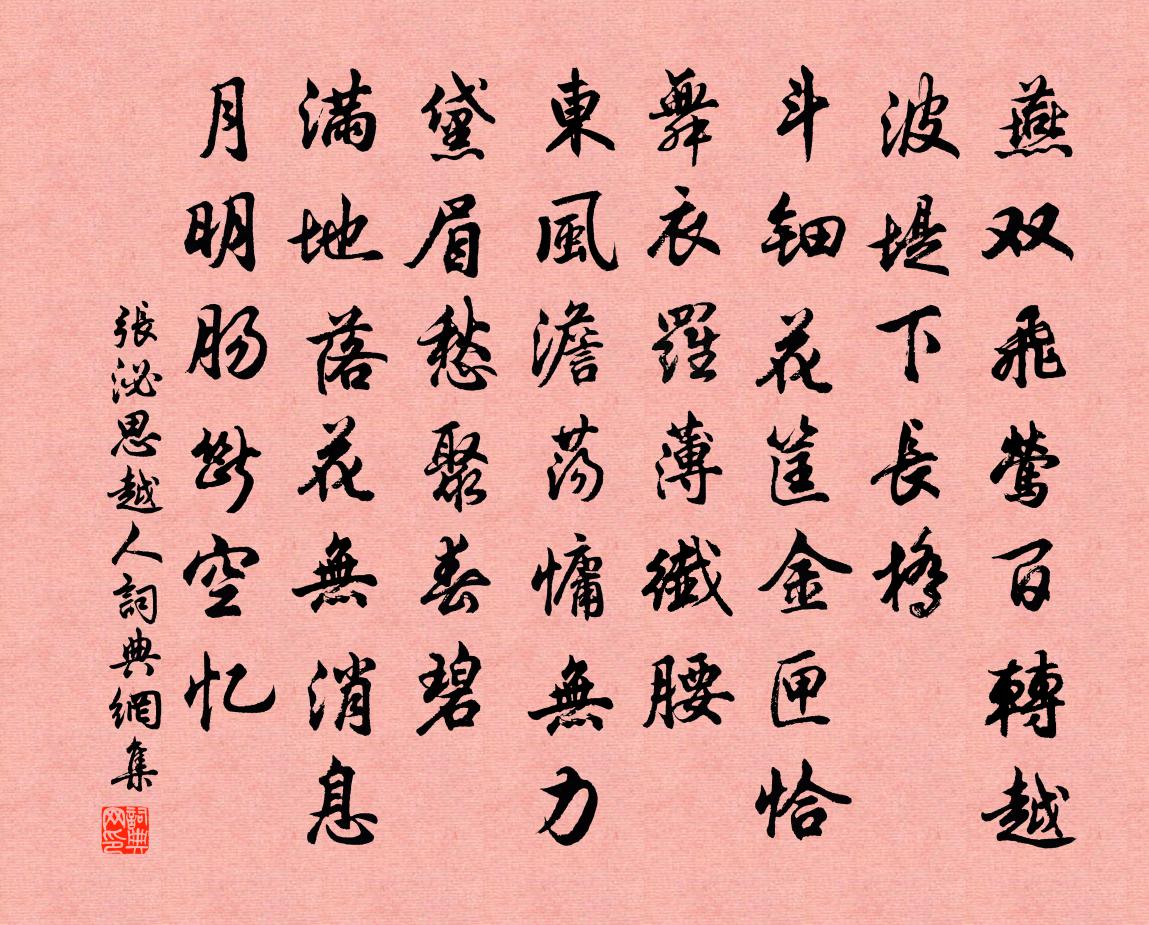 燕双飛鶯百轉越
波堤下長橋
斗鈿花筐金匣恰
舞衣羅薄纖腰
東風澹蕩慵無力
黛眉愁聚春碧
滿地落花無消息
月明肠斷空忆
張泌思越人詞典網集
詞典网印